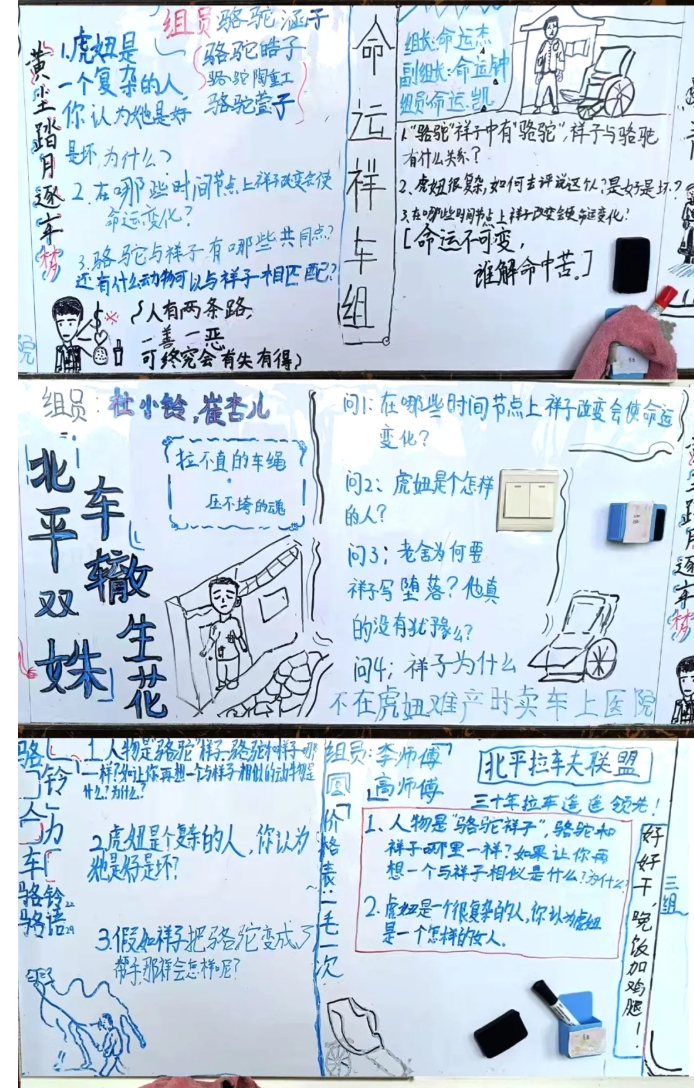 黄尘踏月逐车梦
组员 骆驼涵子
骆驼皓子
骆驼陶重工
骆驼萱子
1.虎妞是
一个复杂的人
你认为她是好
是坏,为什么?
2.在哪些时间节点上祥子改变会使
命运变化?
3.骆驼与祥子有哪些共同点?
还有什么动物可以与祥子相匹配?
人有两条路
一善一恶
可终究会有失有得
命运祥车组
组长:命运杰
副组长:命运钟
组员:命运凯
1."骆驼"祥子中有"骆驼",祥子与骆驼
有什么关系?
2、虎妞很复杂,如何去评说这个人?是好是坏?
3.在哪些时间节点上祥子改变会使命运变化?
[命运不可变,
谁解命中苦。]
院
组员:杜小铃,崔杏儿
北平双姝
车辙生花
拉不直的车绳
压不垮的魂
问1:在哪些时间节点上祥子改变会使命运
变化?
问2:虎妞是个怎样
的人?
问3;老舍为何要
祥子写堕落?他真
的没有犹豫么?
问4;祥子为什么
不在虎妞难产时卖车上医院
踏月逐车梦
骆铃人力车
骆铃
骆语
1.人物是"骆驼"祥子,骆驼和祥子哪
一样?如让你再想一个与祥子相似的动物是
什么?为什么?
2.虎妞是个复杂的人,你认为
她是好是坏?
3.假如祥子把骆驼变成了
帮手,那祥会怎样呢?
组员:李师傅
高师傅
价格表:二毛一次
北平拉车夫联盟
三十年拉车遥遥领先!
1、人物是"骆驼祥子",骆驼和
祥子哪里一样?如果让你再
想一个与祥子相似是什么?为什么?
2.虎妞是一个很复杂的人,你认为虎妞
是一个怎样的女人。
好好干,晚饭加鸡腿!
三组